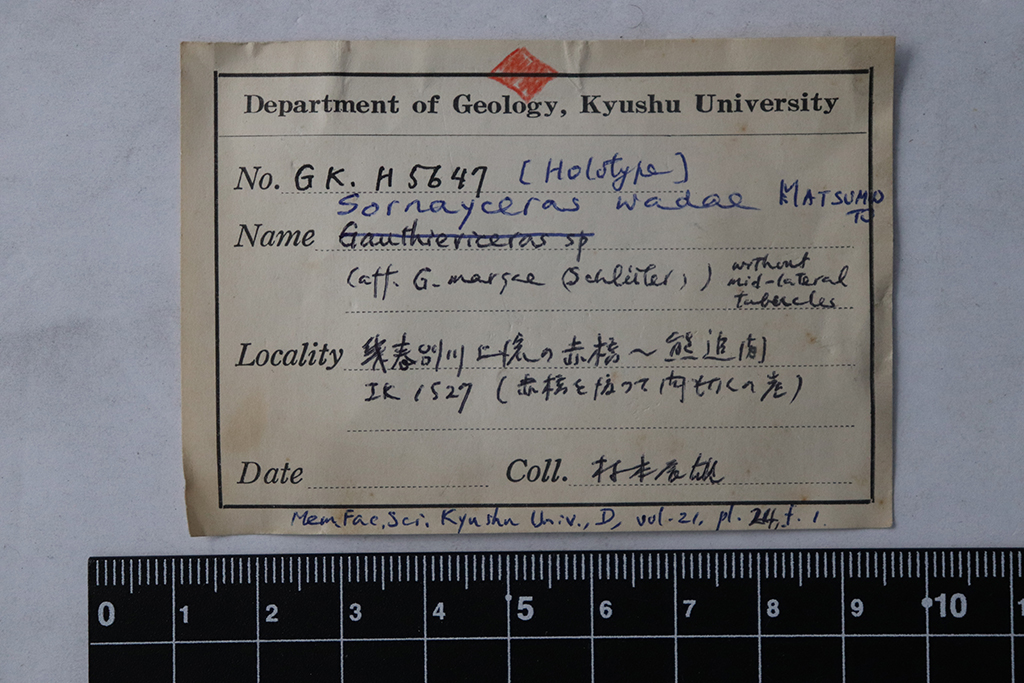 Department of Geology, Kyushu University
No. GK. H5647 [Holotype]
Sornayceras wadae MATSUMOTO
Name Gauthiericeras sp
(aff. G. margae (Schlüter) ) without mid-lateral tubercles
Locality 幾春別川上流の赤橋〜熊追
IK 1527 (赤橋を
Date
Coll. 松本
Mem. Fac. Sci. Kyushu Univ., D, vol. 21, pl. 24, f. 1.
0 1 2 3 4 5 6 7 8 9 10